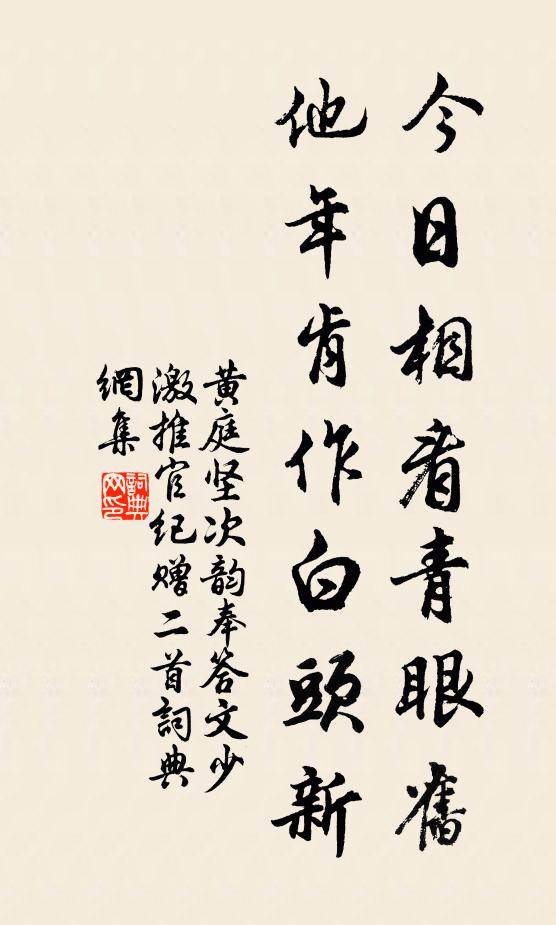 今日相看青眼舊
他年肯作白頭新
黄庭坚次韵奉答文少
激推官纪赠二首詞典
網集
詞典
网印